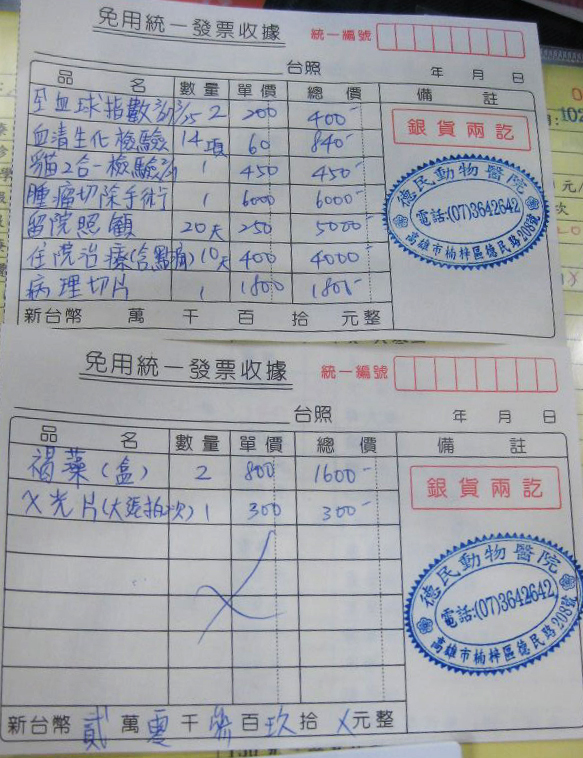 免用統一發票收據 統一編號
台照 年 月 日
品 名 數量 單價 總價 備註
全血球指數 2 200 400-
血清生化檢驗 14項 60 840-
貓2合一檢驗 1 450 450-
腫瘤切除手術 1 6000 6000-
留院照顧 20天 250 5000-
住院治療(含點滴) 10天 400 4000-
病理切片 1 1800 1800-
新台幣 萬 千 百 拾 元整
銀貨兩訖
德民動物醫院
電話:(07)3642642
高雄市楠梓區德民路208號
免用統一發票收據 統一編號
台照 年 月 日
品 名 數量 單價 總價 備註
褐藻(盒) 2 800 1600-
X光片(大張拍次) 1 300 300-
新台幣 貳 萬 零 千 參 百 玖 拾 X 元整
銀貨兩訖
德民動物醫院
電話:(07)3642642
高雄市楠梓區德民路208號